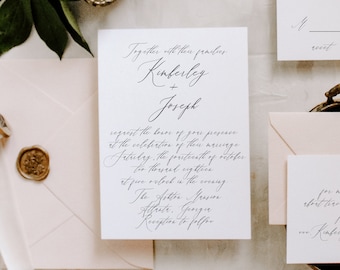 Together with their families
Kimberley
+
Joseph
request the honor of your presence
at the celebration of their marriage
Saturday, the fourteenth of october
two thousand eighteen
at five o'clock in the evening
The Ashton Mansion
Atlanta, Georgia
Reception to follow
M